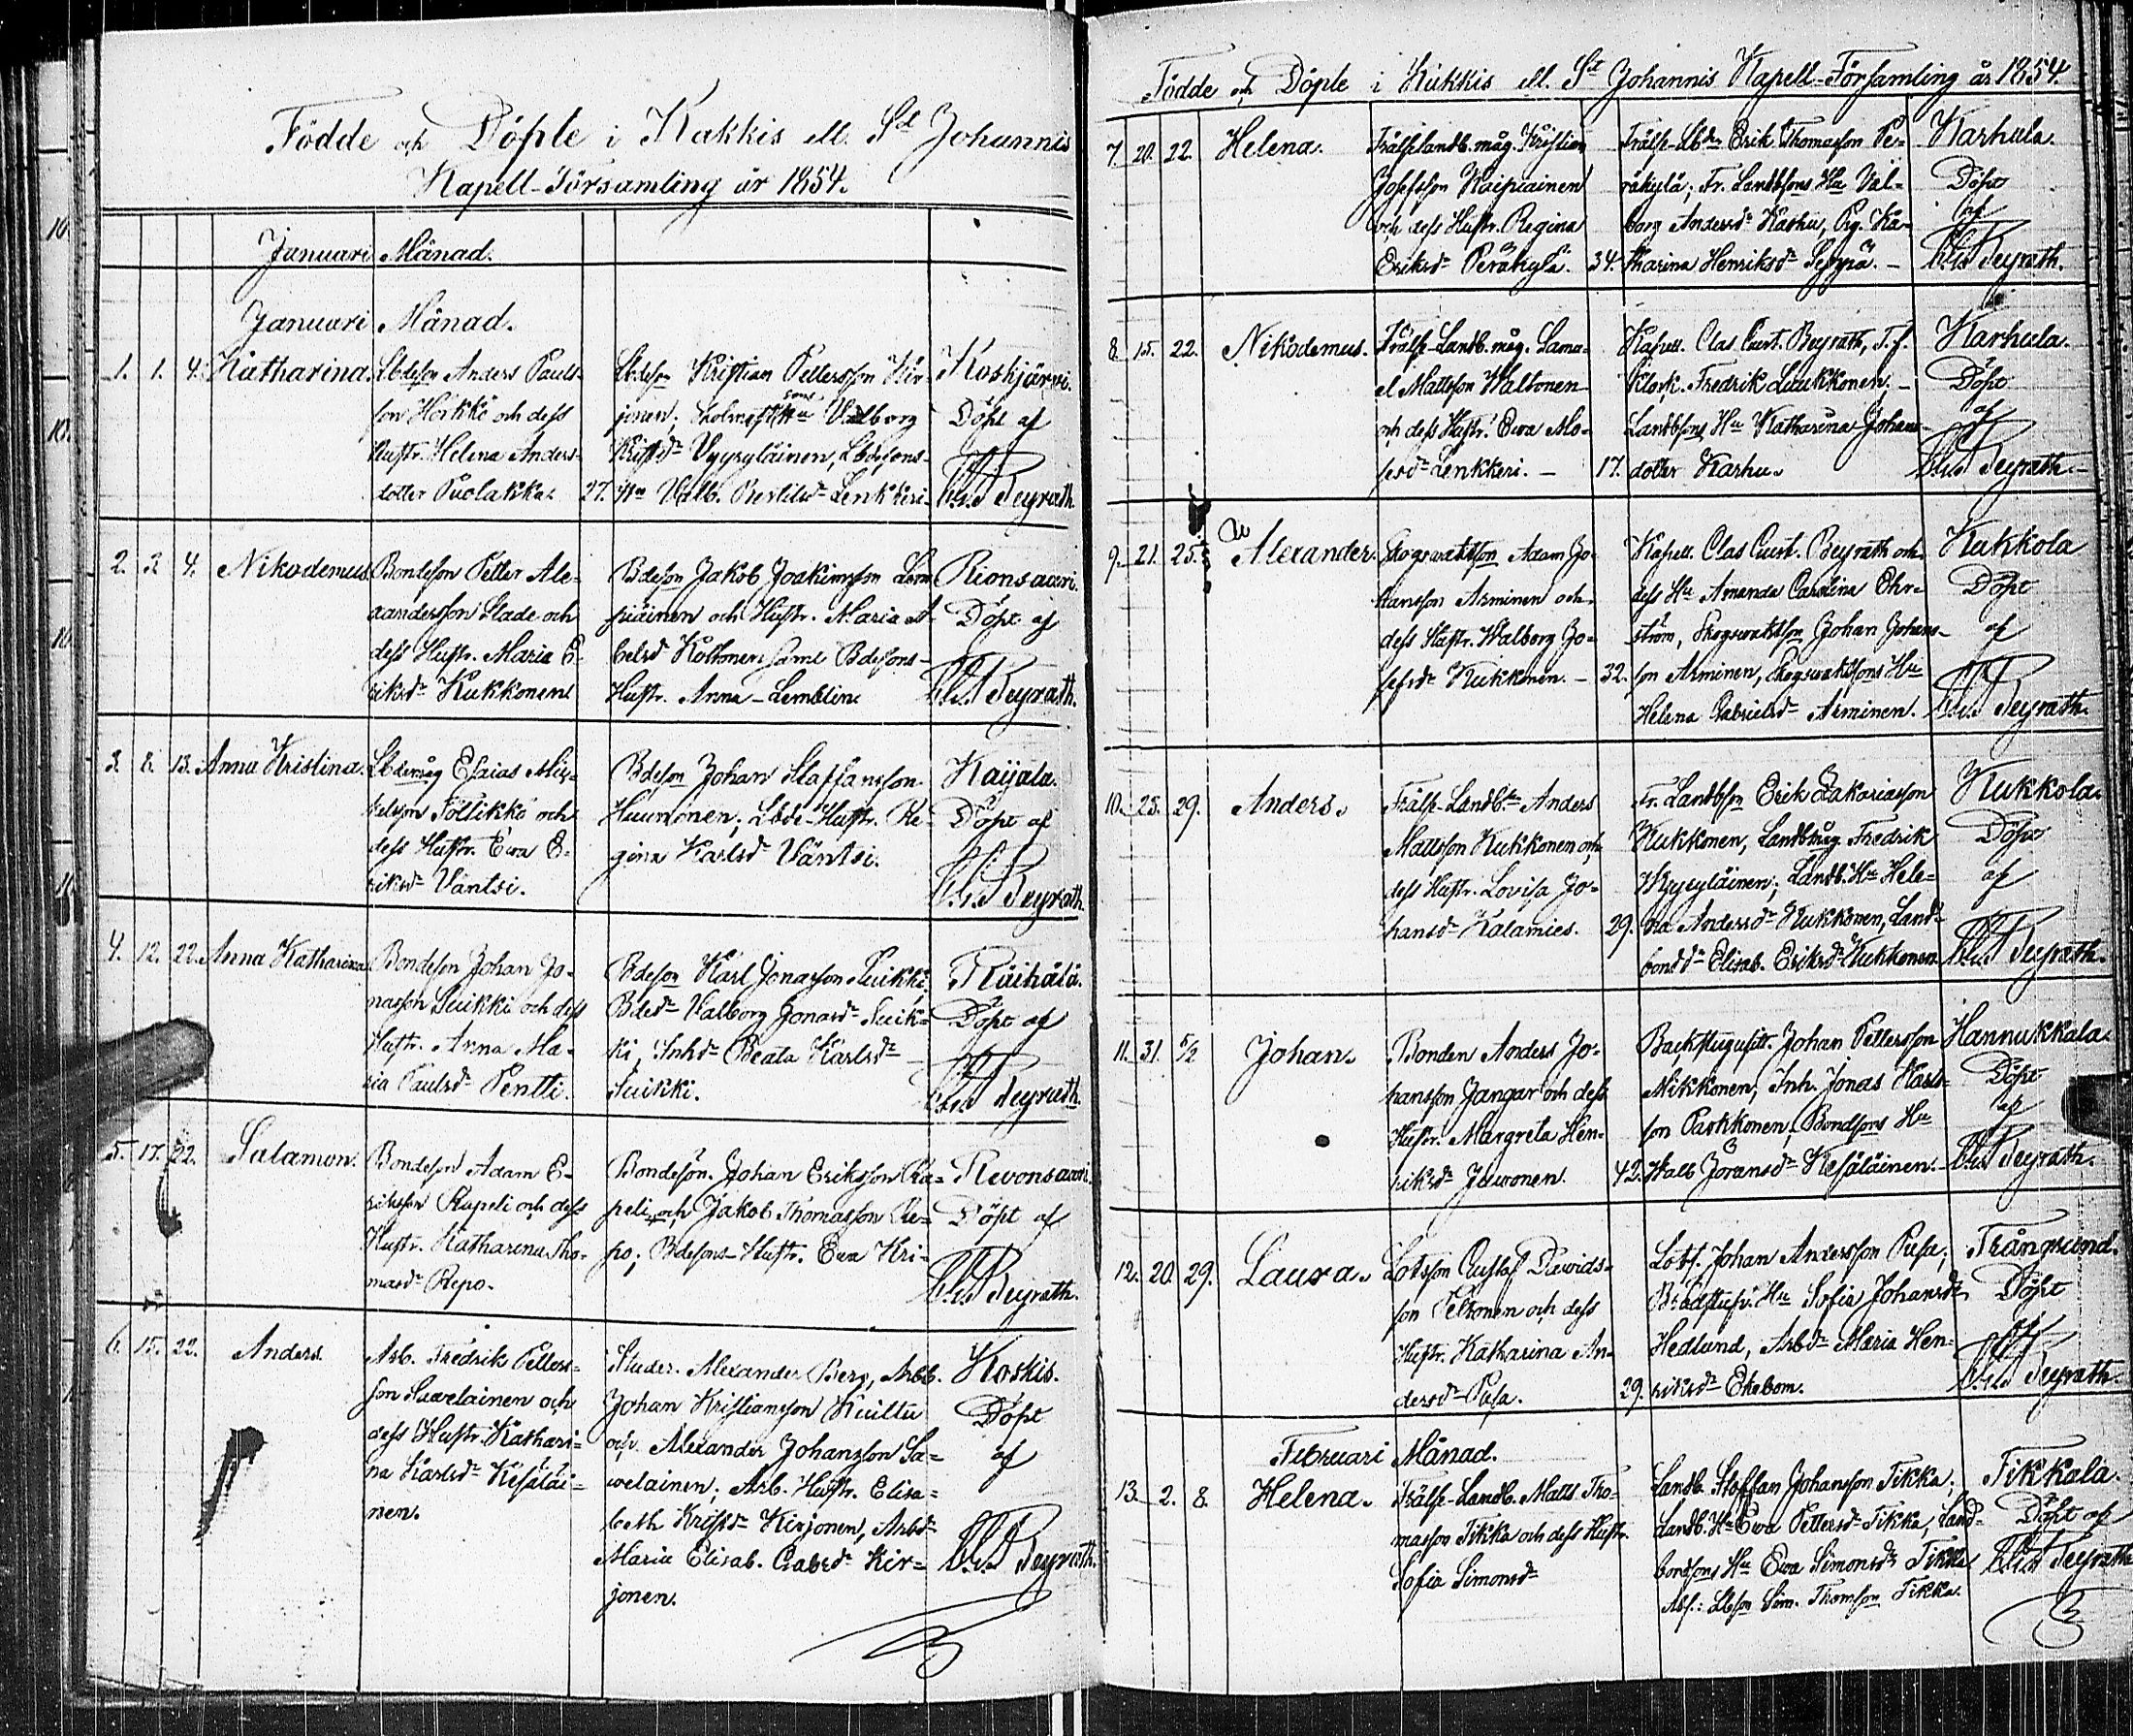 Födde och Döpte i Kakkis ell. St Johannis
Kapell-Församling år 1854.
Januari Månad.
Januari Månad.
1. 1. 4. Katharina. Lbdeson Anders Pauls-
son Horkko och dess
Hustr. Helena Anders-
dotter Puolakka. 27.
Lbdeson Kristian Pettersson Kir-
jonen; Hu Valborg
Kristd Vyyryläinen, Lbdesons-
Hu Valb. Lenkkeri.
Koskjärvi.
Döpt af
Beyrath.
2. 2. 4. Nikodemus. Bondeson Petter Ale-
xandersson Slade och
dess Hustr. Maria E-
riksd Kukkonen
Bdeson Jakob Joakimsson
och Hustr. Maria A-
belsd Koltonen samt Bdesons-
Hustr. Anna
Rionsaari.
Döpt af
Beyrath.
3. 8. 13. Anna Kristina. Lbdemåg Esaias Mis-
kelsson Töllikkö och
dess Hustr. Ewa E-
riksd Väntsi.
Bdeson Johan Staffansson
Huunonen; Lbde-Hustr. Re-
gina Karlsd Väntsi.
Kaijala.
Döpt af
Beyrath.
4. 12. 22. Anna Katharina Bondeson Johan Jo-
nasson Suikki och dess
Hustr. Anna Ma-
ria Paulsd Pentti.
Bdeson Karl Jonasson Suikki,
Bded Valborg Jonasd Suik-
ki, Inhd Beata Karlsd
Suikki.
Räihälä.
Döpt af
Beyrath.
5. 17. 22. Salamon. Bondeson Adam E-
riksson Rapeli och dess
Hustr. Katharina Tho-
masd Repo.
Bondeson. Johan Eriksson Ra-
peli och Jakob Thomasson Re-
po; Bdesons-Hustr. Ewa Kri-
Revonsaari.
Döpt af
Beyrath.
6. 15. 22. Anders. Arb. Fredrik Petters-
son Sawelainen och
dess Hustr. Kathari-
na Karlsd Kesäläi-
nen.
Studer. Alexander Berg, Arbb.
Johan Kristiansson Kuiltu
och Alexander Johansson Sa-
welainen; Arb. Hustr. Elisa-
beth Kristd Kirjonen, Arbd
Maria Elisab. Gabrd Kir-
jonen.
Koskis.
Döpt
af
Beyrath.
Födde och Döpte i Kukkis ell. St Johannis Kapell-Församling år 1854.
7. 20. 22. Helena. Frälselandb. måg. Kristian
Josefsson Kaipiainen
och dess Hustr. Regina
Eriksd Peräkylä. 34.
Frälse-Lbdn Erik Thomasson Pe-
räkylä; Fr. Landbsons Hu Val-
borg Andersd Karhu, Pig. Ka-
tharina Henriksd Seppä. -
Karhula.
Döpt
af
Beyrath.
8. 15. 22. Nikodemus. Frälse-Landb. måg. Samu-
el Mattsson Waltonen
och dess Hustr. Ewa Mo-
sesd Lenkkeri. - 17.
Kapell. Clas Gust. Beyrath, T. f.
Klock. Fredrik Luukkonen. -
Landbsons Hu Katharina Johans-
dotter Karhu.
Karhula.
Döpt
af
Beyrath.
9. 21. 25. Alexander. Skogswaktson Adam Jo-
hansson Arminen och
dess Hustr. Walborg Jo-
sefsd Kukkonen. - 32.
Kapell. Clas Gust. Beyrath och
dess Hu Amanda Carolina Ehr-
ström, Skogswaktson Johan Johans-
son Arminen, Skogswaktsons Hu
Helena Gabrielsd Arminen.
Kukkola
Döpt
af
Beyrath.
10. 25. 29. Anders. Frälse-Landb. Anders
Mattsson Kukkonen och
dess Hustr. Lovisa Jo-
hansd Kalamies. 29.
Fr. Landbson Erik Zakariasson
Kukkonen, Landbmåg. Fredrik
Wyyryläinen; Landb. Hu Hele-
na Andersd Kukkonen, Land-
bond d Elisab. Eriksd Kukkonen
Kukkola.
Döpt
af
Beyrath.
11. 31. 5/2 Johan. Bonden Anders Jo-
hansson Jangar och dess
Hustr. Margreta Hen-
riksd Juwonen. 42.
Backstugusitt. Johan Pettersson
Mikkonen, Inh. Jonas Karls-
son Parkkonen, Bondsons Hu
Walb Joransd Kesäläinen.
Hannukkala.
Döpt
af
Beyrath.
12. 20. 29. Laura. Lotsson Gustaf Davids-
son Peltonen och dess
Hustr. Katharina An-
dersd Pusa. 29.
Lots. Johan Andersson Pusa;
Hu Sofia Johansd
Hedlund, Arbd Maria Hen-
riksd Ekebom.
Trångsund.
Döpt
af
Beyrath.
Februari Månad.
13. 2. 8. Helena. Frälse-Landb. Matts Tho-
masson Tikka och dess Hustr.
Sofia Simonsd
Landb. Staffan Johansson Tikka;
Landb. Hu Ewa Pettersd Tikka, Land-
bondsons Hu Ewa Simonsd Tikka
Abs.: Lbson Sim. Thomson Tikka.
Tikkala.
Döpt af
Beyrath